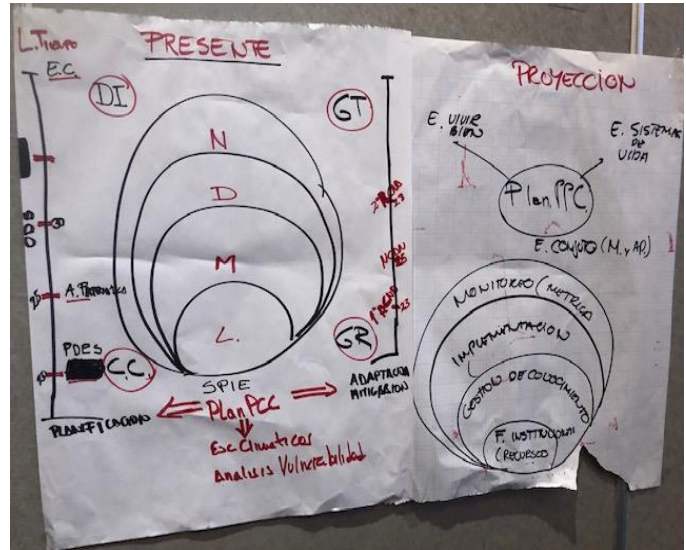 L. Tiempo
E.C.
PRESENTE
DI
GT
N
D
M
L.
ODS
PDES
C.C.
GR
SPIE
ADAPTACION
MITIGACION
PLANIFICACION
Plan PCC
Esc Climaticos
Analisis Vulnerabilidad
PROYECCION
E. VIVIR
BIEN
E. SISTEMAS
DE
VIDA
Plan PPC.
E. CONJUTO (M. y AD.)
MONITOREO (METRICA
IMPLEMENTACION
GESTION DE CONOCIMIENTO
F. INSTITUCIONAL
(RECURSOS